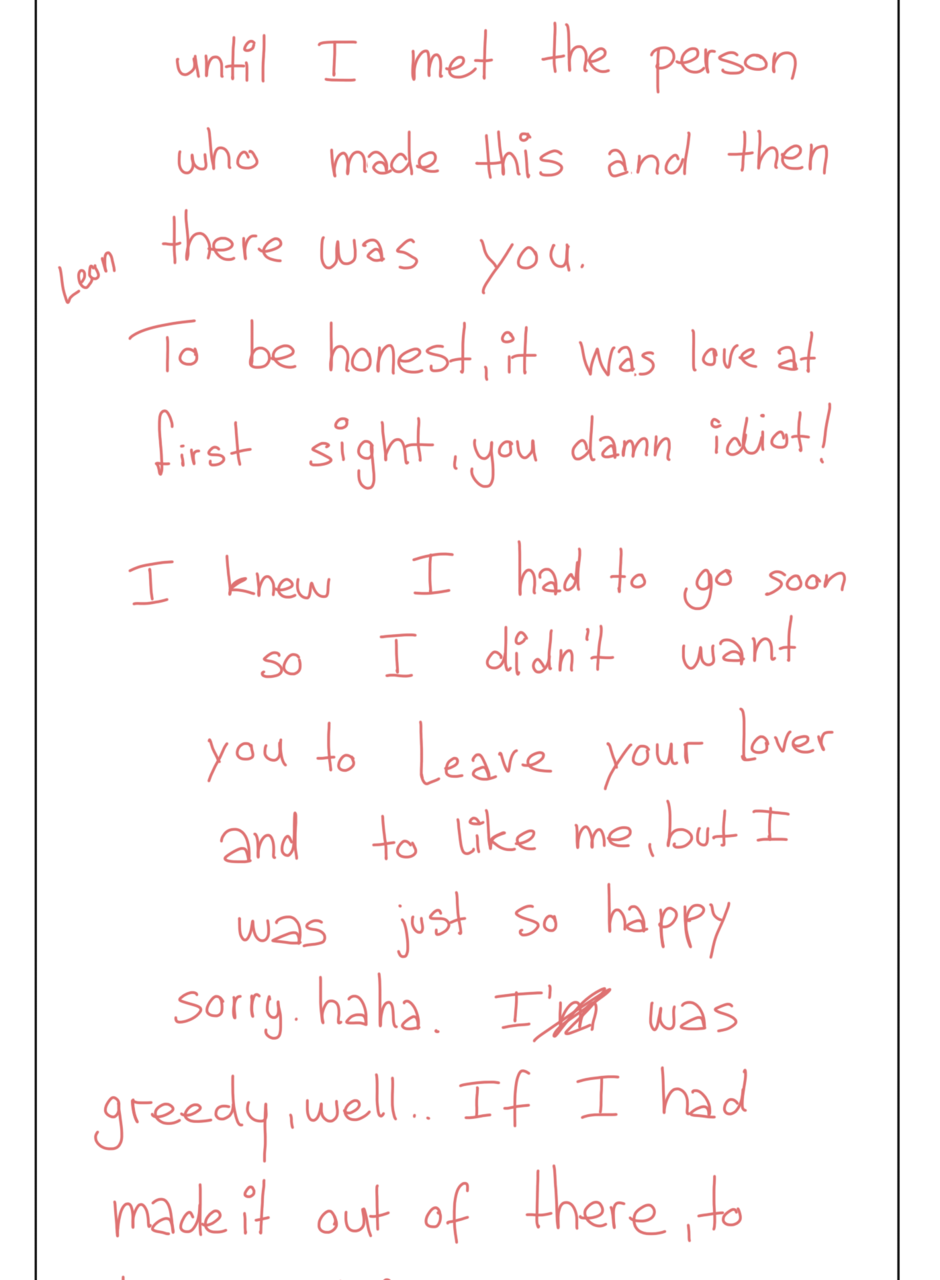 until I met the person
who made this and then
Leon
there was you.
To be honest, it was love at
first sight, you damn idiot!
I knew I had to go soon
so I didn't want
you to leave your lover
and to like me, but I
was just so happy
sorry. haha. I' was
greedy, well.. If I had
made it out of there, to